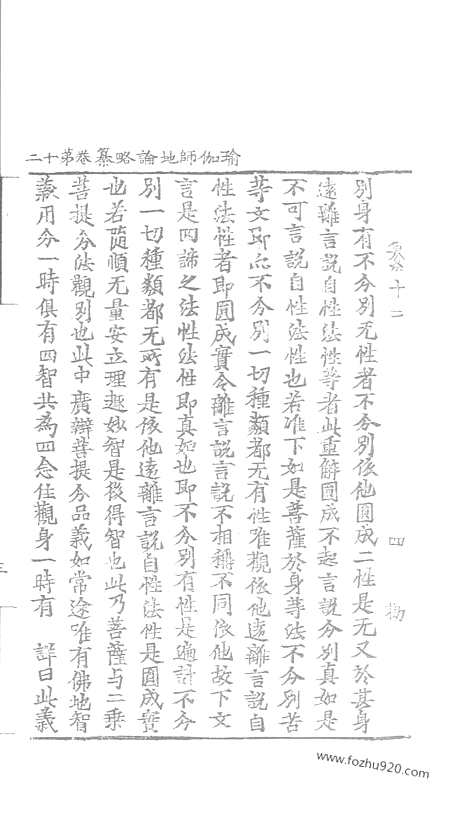 瑜伽師地論略纂卷第十二
別身有不分別无性者不分別依他圓成二性是无又於甚身
遠離言說自性法性等者此重解圓成不起言說分別真如是
不可言說自性法性也若准下如是菩薩於身等法不分別苦
等文即亦不分別一切種類都无有性唯觀依他遠離言說自
性法性者即圓成實令離言說言說不相稱不同依他故下文
言是四諦之法性法性即真如也即不分別有性是遍計不分
別一切種類都无所有是依他遠離言說自性法性是圓成實
也若隨順无量安立理趣妙智是後得智也此乃菩薩与二乘
菩提分法觀別也此中廣辯菩提分品義如常途唯有佛地智
義用分一時俱有四智共為四念住觀身一時有 詳曰此義
纂十二
四
www.fozhu920.com